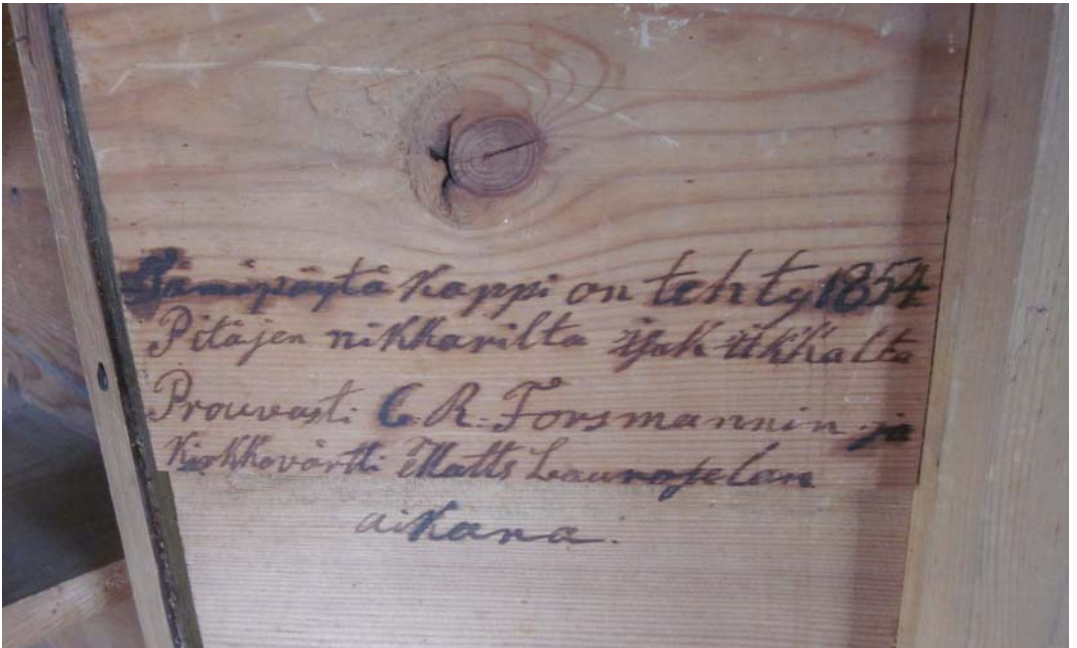 Tämäpöytä kappi on tehty 1854
Pitäjen nikkarilta isak iikkalta
Prouvasti C. R. Forsmannin ja
Kirkkovärtti Matts Lauroselan
aikana.